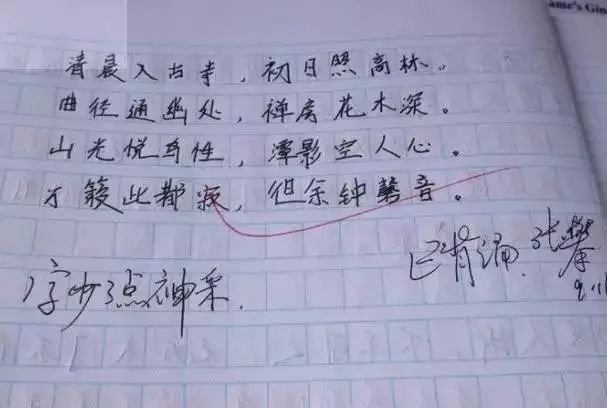 ame's Gin
清晨入古寺，初日照高林。
曲径通幽处，禅房花木深。
山光悦鸟性，潭影空人心。
万籁此都寂，但余钟磬音。
已背诵.张攀
字少了点神采.